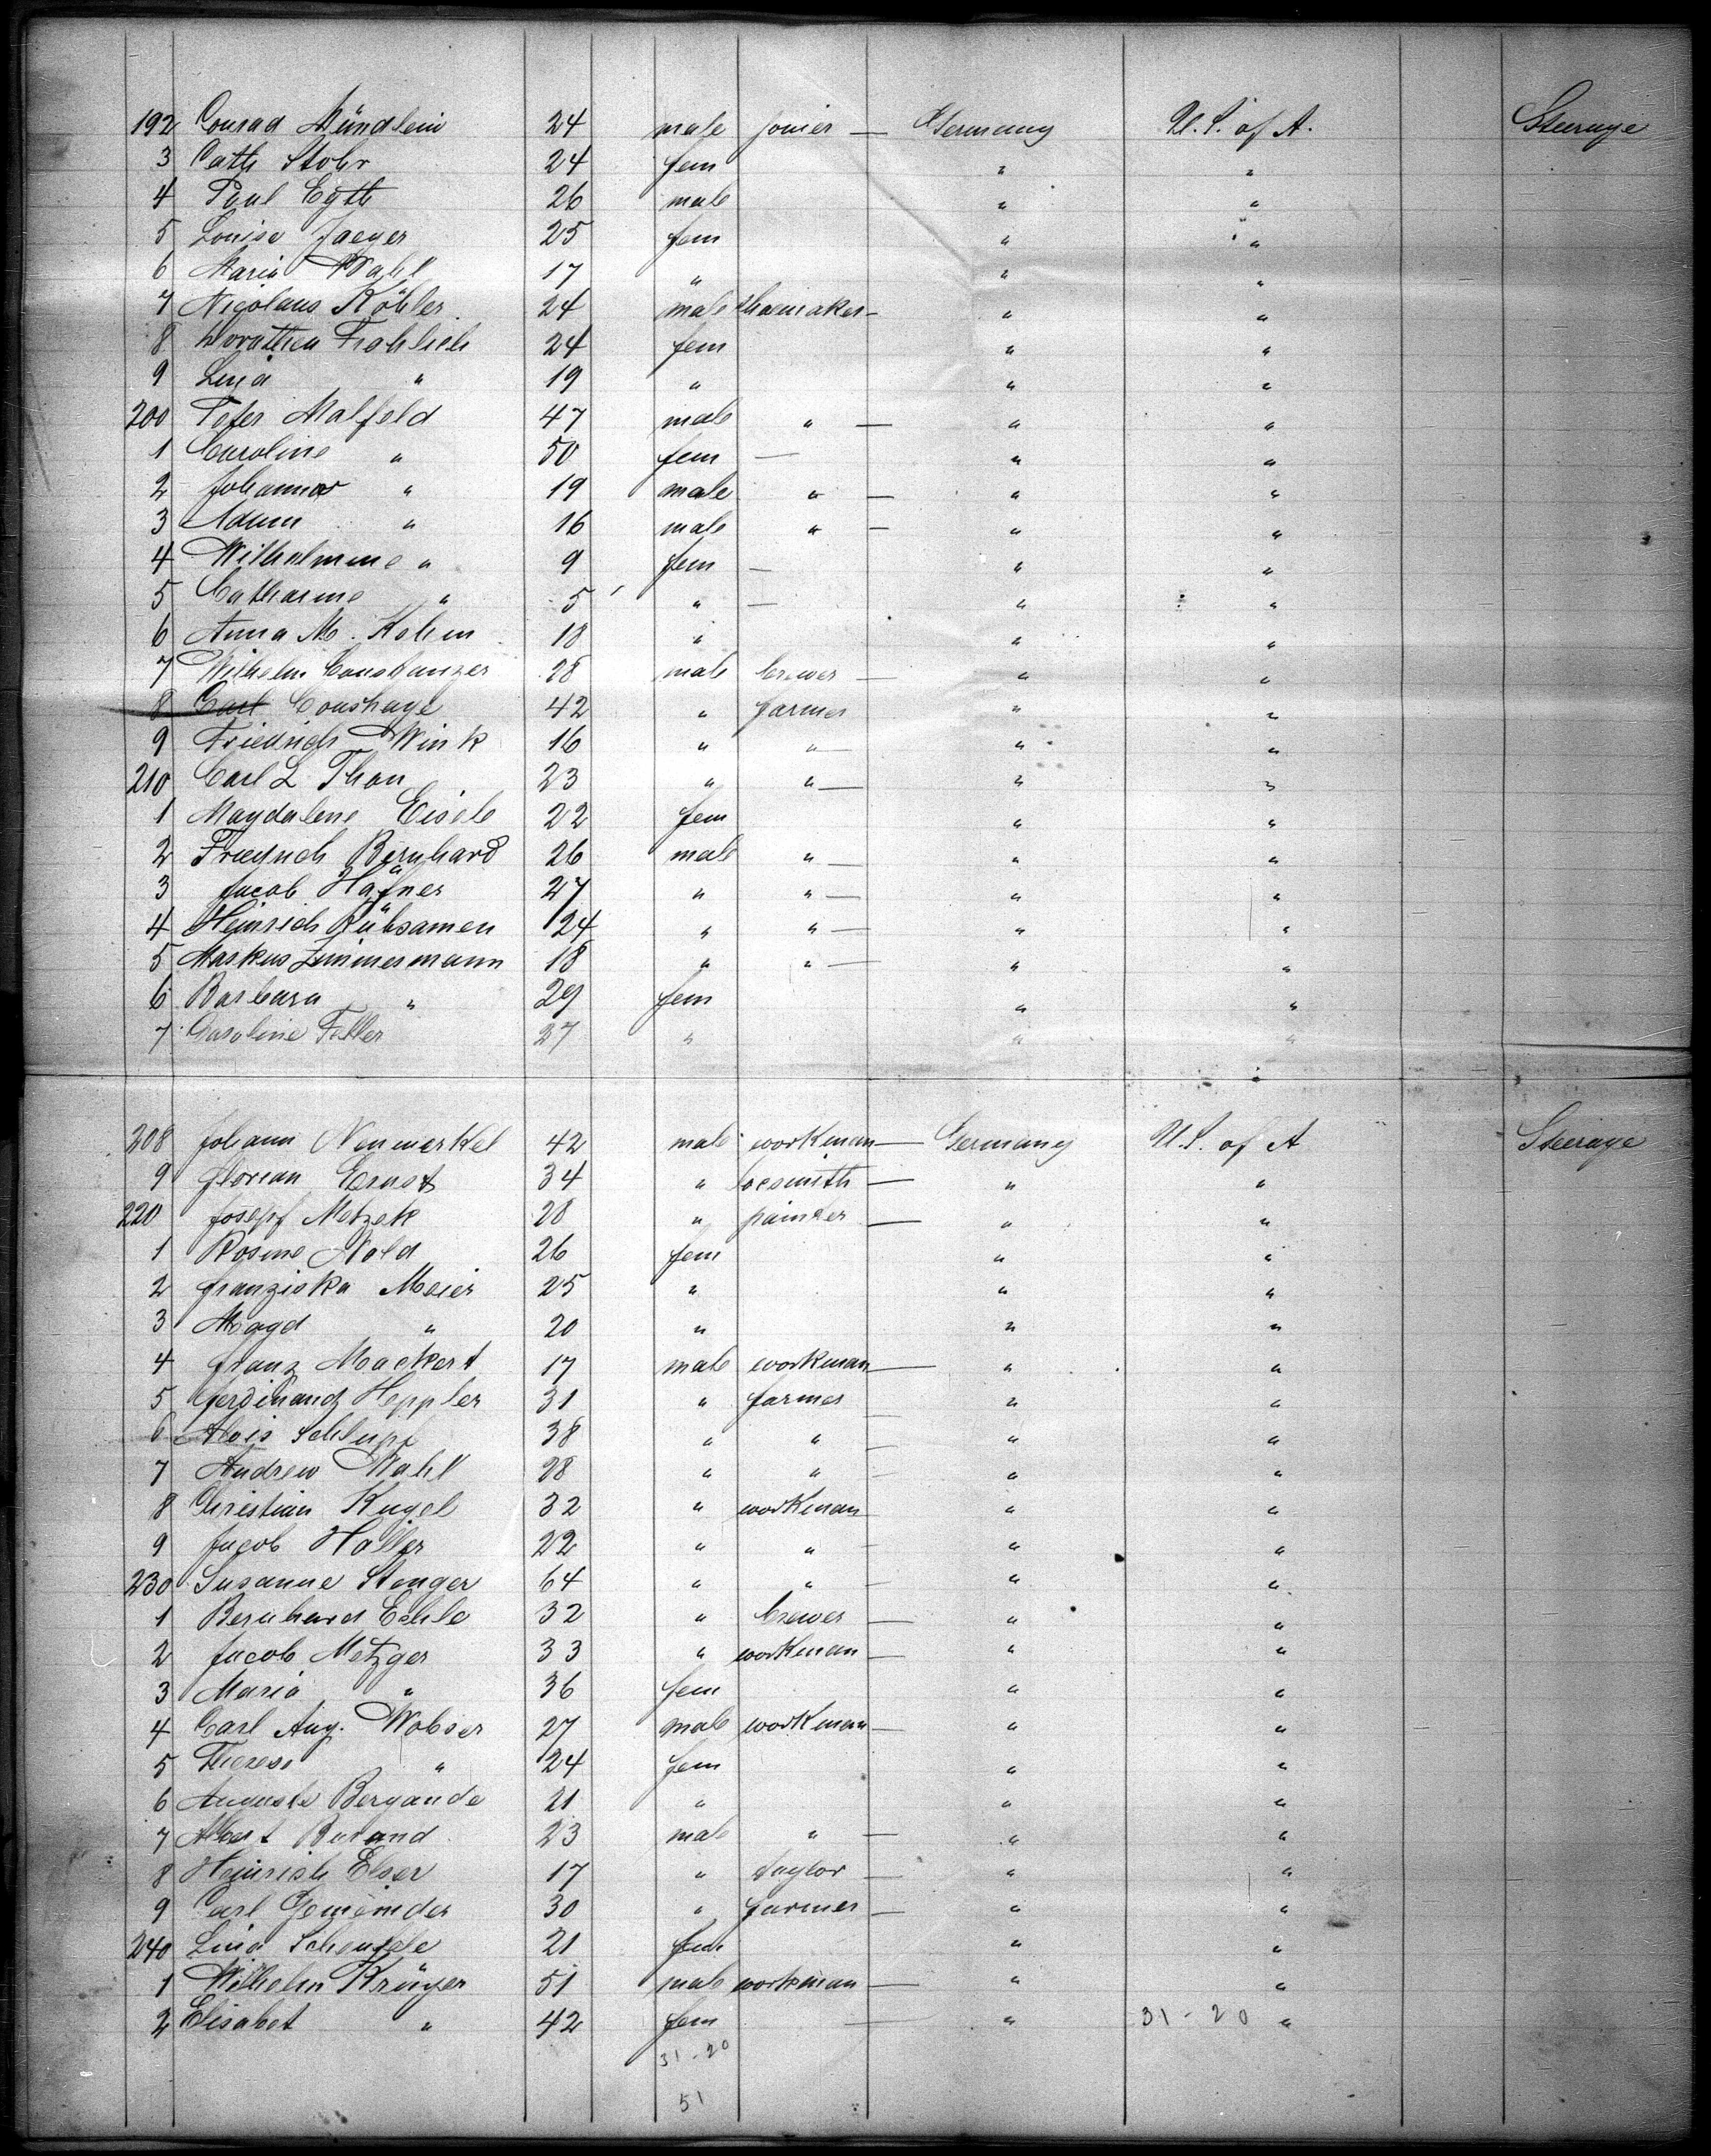 192 Conrad Mündlein 24 male joiner — Germany U.S. of A. Steerage
3 Cath Stohr 24 fem " "
4 Paul Egth 26 male " "
5 Louise Jaeger 25 fem " "
6 Maria Wahl 17 " " "
7 Nicolaus Köhler 24 male shoemaker — " "
8 Dorothea Frohlich 24 fem " "
9 Lina " 19 " " "
200 Peter Malfeld 47 male " — " "
1 Caroline " 50 fem — " "
2 Johannes " 19 male " — " "
3 Adam " 16 male " — " "
4 Wilhelmine " 9 fem — " "
5 Catharine " 5 " — " "
6 Anna M. Kohm 18 " " "
7 Wilhelm Constanzer 28 male brewer — " "
8 Carl Conshage 42 " farmer " "
9 Friedrich Wink 16 " " — " "
210 Carl L Thon 23 " " — " "
1 Magdalene Eisele 22 fem " "
2 Friedrich Bernhard 26 male " — " "
3 Jacob Häfner 27 " " — " "
4 Heinrich Rübsamen 24 " " — " "
5 Markus Zimmermann 18 " " — " "
6 Barbara " 29 fem " "
7 Caroline Feller 27 " " "
208 Johann Neumerkel 42 male workman — Germany U.S. of A Steerage
9 Florian Ernst 34 " locsmith — " "
220 Josepf Metzek 28 " painter — " "
1 Rosine Nold 26 fem " "
2 Franziska Meier 25 " " "
3 Magd " 20 " " "
4 Franz Mackert 17 male workman — " "
5 Ferdinand Heppler 31 " farmer " "
6 Alois Schlupf 38 " " — " "
7 Andrew Wahl 28 " " — " "
8 Christian Kugel 32 " workman " "
9 Jacob Haller 22 " " — " "
230 Susanne Stenger 64 " " — " "
1 Bernhard Echle 32 " brewer — " "
2 Jacob Metzger 33 " workman — " "
3 Maria " 36 fem " "
4 Carl Aug. Wobser 27 male workman — " "
5 Therese " 24 fem " "
6 Auguste Bergande 21 " " "
7 Albert Burand 23 male " — " "
8 Heinrich Elser 17 " taylor — " "
9 Carl Gemeinder 30 " farmer — " "
240 Lina 21 fem " "
1 Wilhelm Krüger 51 male workman — " "
2 Elisabet " 42 fem — " 31 - 20 "
31 - 20
51